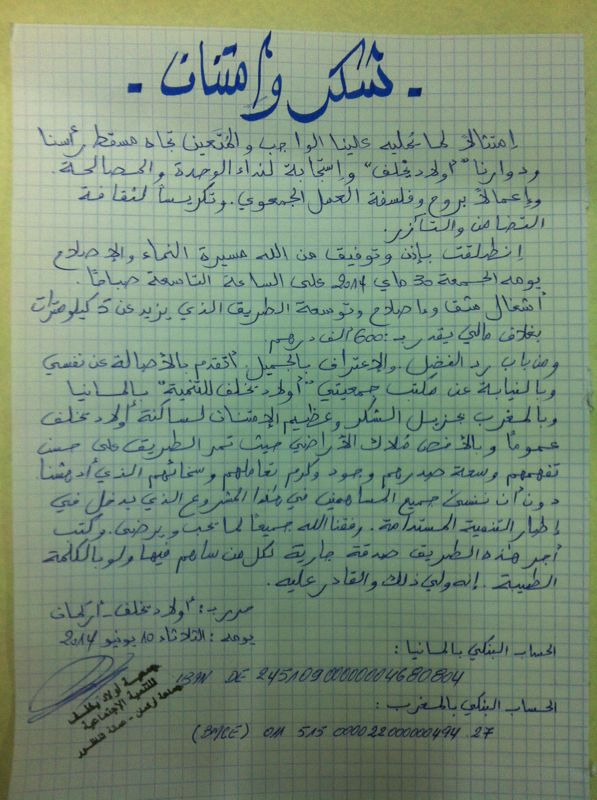 - شكر وامتنان -
إمتثالاً لما تمليه علينا الواجب والمتعين تجاه مسقط رأسنا
ودوارنا "أولاد يخلف" وإستجابة لنداء الوحدة والمصالحة.
وإعمالاً بروح وفلسفة العمل الجمعوي. وتكريساً لثقافة
التضامن والتآزر.
إنطلقت بإذن وتوفيق من الله مسيرة النماء والإصلاح
يومه الجمعة 30 ماي 2014 على الساعة التاسعة صباحاً.
أشغال شق وإصلاح وتوسعة الطريق الذي يزيد عن 5 كيلومترات
بغلاف مالي يقدر بـ: 600 ألف درهم
ومن باب رد الفضل والإعتراف بالجميل أتقدم بالأصالة عن نفسي
وبالنيابة عن جمعيتي "أولاد يخلف للتنمية" بألمانيا
وبالمغرب بجزيل الشكر وعظيم الإمتنان لساكنة أولاد يخلف
عموماً وبالأخص مُلاك الأراضي حيث تمر الطريق على حسن
تفهمهم وسعة صدرهم وجود وكرم تعاملهم وسخائهم الذي أدهشنا
دون أن ننسى جميع المساهمين في هذا المشروع الذي يدخل في
إطار التنمية المستدامة. وفقنا الله جميعاً لما يحب ويرضى. وكتب
أجر هذه الطريق صدقة جارية لكل من ساهم فيها ولو بالكلمة
الطيبة. إنه ولي ذلك والقادر عليه.
حرر بـ: أولاد يخلف - أركمان
يومه: الثلاثاء 10 يونيو 2014
الحساب البنكي بألمانيا:
IBAN DE 24510900000004680804
الحساب البنكي بالمغرب:
(BMCE) 011 515 0000220000000494 27
جمعية أولاد يخلف
للتنمية الإجتماعية